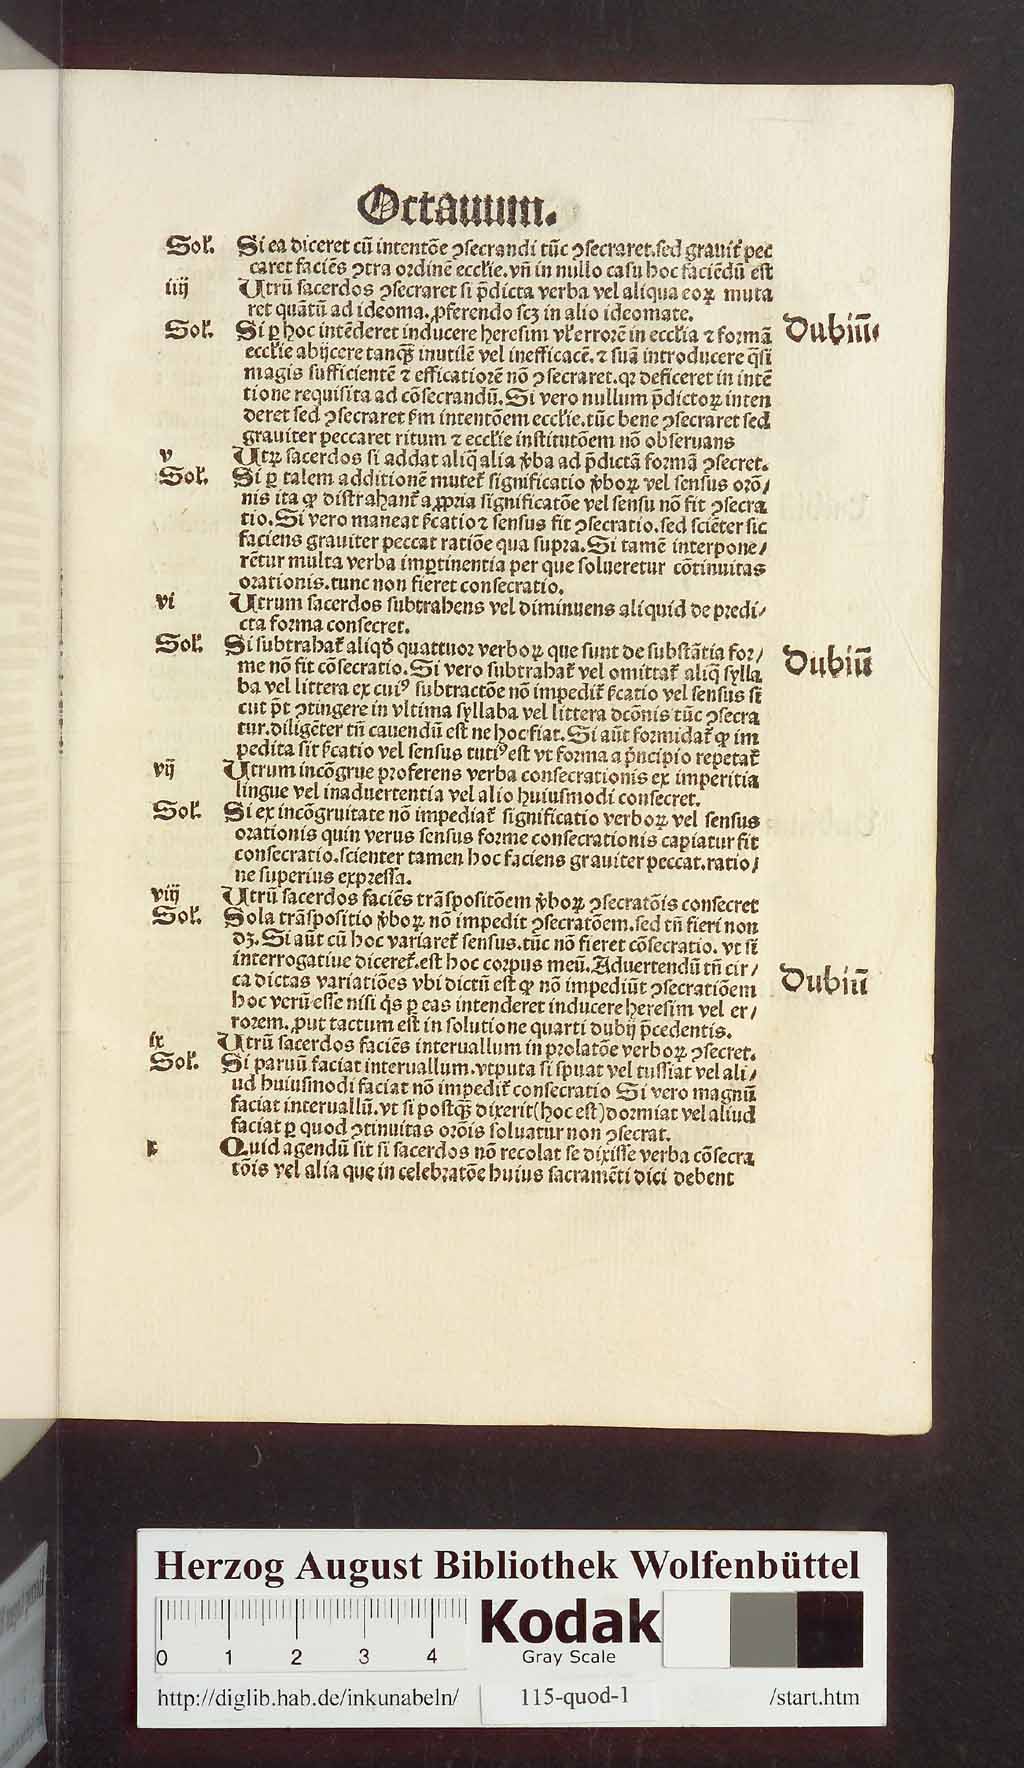 Octauum.
Sol'. Si ea diceret cū intentōe ꝯsecrandi tūc ꝯsecraret.sed grauit̉ pec
caret faciēs ꝯtra ordinē eccl'ie.vn̄ in nullo casu hoc faciēdū est
iiij Utrū sacerdos ꝯsecraret si p̄dicta verba vel aliqua eoꝝ muta
ret quātū ad ideoma.ꝓferendo scꝫ in alio ideomate.
Dubiū.
Sol'. Si ꝑ hoc intēderet inducere heresim vl' errorē in eccl'ia ⁊ formā
eccl'ie abijcere tanqꝫ̄ inutilē vel inefficacē.⁊ suā introducere q̄si
magis sufficientē ⁊ efficatiorē nō ꝯsecraret.qꝛ deficeret in intē
tione requisita ad cōsecrandū.Si vero nullum p̄dictoꝝ inten
deret sed ꝯsecraret ẜm intentōem eccl'ie.tūc bene ꝯsecraret sed
grauiter peccaret ritum ⁊ eccl'ie institutōem nō obseruans
v Utꝝ sacerdos si addat aliq̄ alia v̓ba ad p̄dictā formā ꝯsecret.
Sol'. Si ꝑ talem additionē mutet̉ significatio v̓boꝝ vel sensus orō/
nis ita ꝙ distrahant̉ a ꝓpria significatōe vel sensu nō fit ꝯsecra
tio.Si vero maneat ẜcatio ⁊ sensus fit ꝯsecratio.sed sciēter sic
faciens grauiter peccat ratiōe qua supra.Si tamē interpone/
rētur multa verba imꝑtinentia per que solueretur cōtinuitas
orationis.tunc non fieret consecratio.
vi Utrum sacerdos subtrahens vel diminuens aliquid de predi/
cta forma consecret.
Sol'. Si subtrahat̉ aliqd̓ quattuor verboꝝ que sunt de substātia for/
Dubiū
me nō fit cōsecratio.Si vero subtrahat̉ vel omittat̉ aliq̄ sylla
ba vel littera ex cuiꝰ subtractōe nō impedit̉ ẜcatio vel sensus si
cut p̄t ꝯtingere in vltima syllaba vel littera dcōnis tūc ꝯsecra
tur.diligēter tn̄ cauendū est ne hoc fiat.Si aūt formidat̉ ꝙ im
pedita sit ẜcatio vel sensus tutiꝰ est vt forma a p̓ncipio repetat̉
vij Utrum incōgrue proferens verba consecrationis ex imperitia
lingue vel inaduertentia vel alio huiusmodi consecret.
Sol'. Si ex incōgruitate nō impediat̉ significatio verboꝝ vel sensus
orationis quin verus sensus forme consecrationis capiatur fit
consecratio.scienter tamen hoc faciens grauiter peccat.ratio/
ne superius expressa.
viij Utrū sacerdos faciēs trāspositōem v̓boꝝ ꝯsecratōis consecret
Sol'. Sola trāspositio v̓boꝝ nō impedit ꝯsecratōem.sed tn̄ fieri non
dꝫ.Si aūt cū hoc variaret̉ sensus.tūc nō fieret cōsecratio. vt si
interrogatiue diceret̉.est hoc corpus meū.Aduertendū tn̄ cir/
Dubiū
ca dictas variatiōes vbi dictū est ꝙ nō impediūt ꝯsecratiōem
hoc verū esse nisi q̓s ꝑ eas intenderet inducere heresim vel er/
rorem.ꝓut tactum est in solutione quarti dubij p̄cedentis.
ix Utrū sacerdos faciēs interuallum in prolatōe verboꝝ ꝯsecret.
Sol'. Si paruū faciat interuallum.vtputa si spuat vel tussiat vel ali/
ud huiusmodi faciat nō impedit̉ consecratio Si vero magnū
faciat interuallū.vt si postqꝫ̄ dixerit(hoc est)dormiat vel aliud
faciat ꝑ quod ꝯtinuitas orōis soluatur non ꝯsecrat.
x Quid agendū sit si sacerdos nō recolat se dixisse verba cōsecra
tōis vel alia que in celebratōe huius sacramēti dici debent
Herzog August Bibliothek Wolfenbüttel
0 1 2 3 4
Kodak
Gray Scale
http://diglib.hab.de/inkunabeln/ 115-quod-1 /start.htm